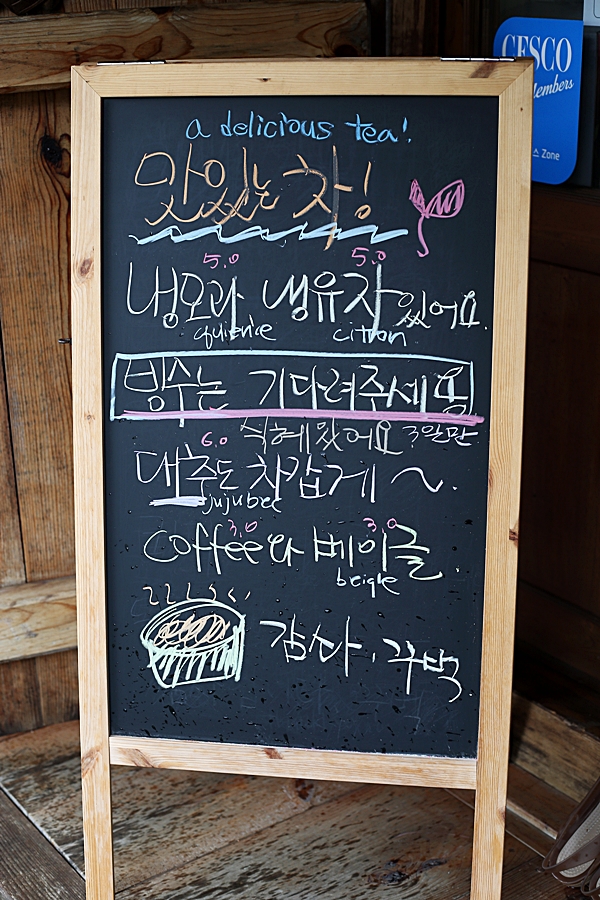 CESCO
Members
Zone
a delicious tea!
맛있는 차!
5.0 5.0
냉모과 냉유자 있어요.
quience citron
빙수는 기다려주세욤
식혜 있어요 3일만
6.0
대추도 차갑게 ~.
jujubee
3.0 3.0
coffee와 베이글.
beigle
감사, 꾸벅